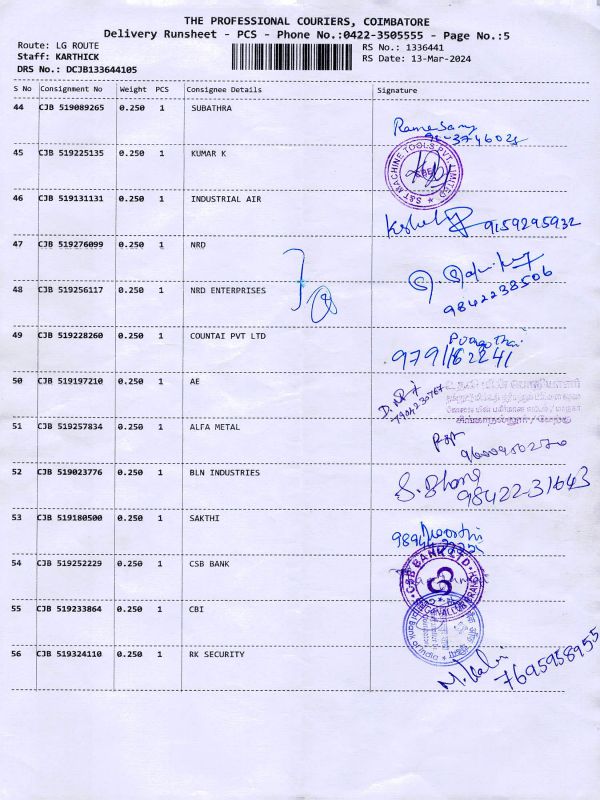 THE PROFESSIONAL COURIERS, COIMBATORE
Delivery Runsheet - PCS - Phone No.:0422-3505555 - Page No.:5
Route: LG ROUTE RS No.: 1336441
Staff: KARTHICK RS Date: 13-Mar-2024
DRS No.: DCJB133644105
S No Consignment No Weight PCS Consignee Details Signature
44 CJB 519089265 0.250 1 SUBATHRA
Ramasamy
45 CJB 519225135 0.250 1 KUMAR K
S&T MACHINE TOOLS PVT. LIMITED
46 CJB 519131131 0.250 1 INDUSTRIAL AIR
9159295932
47 CJB 519276099 0.250 1 NRD
48 CJB 519256117 0.250 1 NRD ENTERPRISES
9842238506
49 CJB 519228260 0.250 1 COUNTAI PVT LTD
9791162241
50 CJB 519197210 0.250 1 AE
51 CJB 519257834 0.250 1 ALFA METAL
52 CJB 519023776 0.250 1 BLN INDUSTRIES
98422-31643
53 CJB 519180500 0.250 1 SAKTHI
Moorthi
54 CJB 519252229 0.250 1 CSB BANK
CSB BANK LTD.
55 CJB 519233864 0.250 1 CBI
56 CJB 519324110 0.250 1 RK SECURITY
7695958955